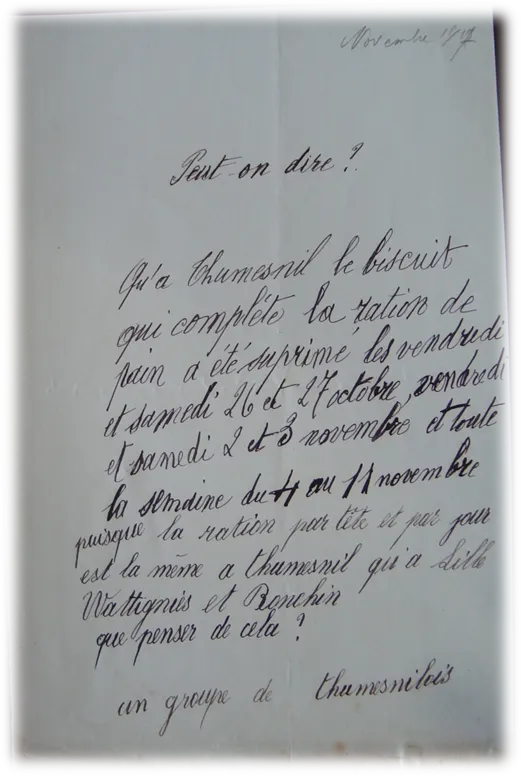 Novembre 1917
Peut-on dire ?
Qu'a Thumesnil le biscuit
qui complête la ration de
pain a été suprimé les vendredi
et samedi 26 et 27 octobre, vendredi
et samedi 2 et 3 novembre et toute
la semaine du 4 au 11 novembre
puisque la ration par tête et par jour
est la même a thumesnil qu'a Lille
Wattigniés et Ronchin
que penser de cela ?
un groupe de thumesnilois